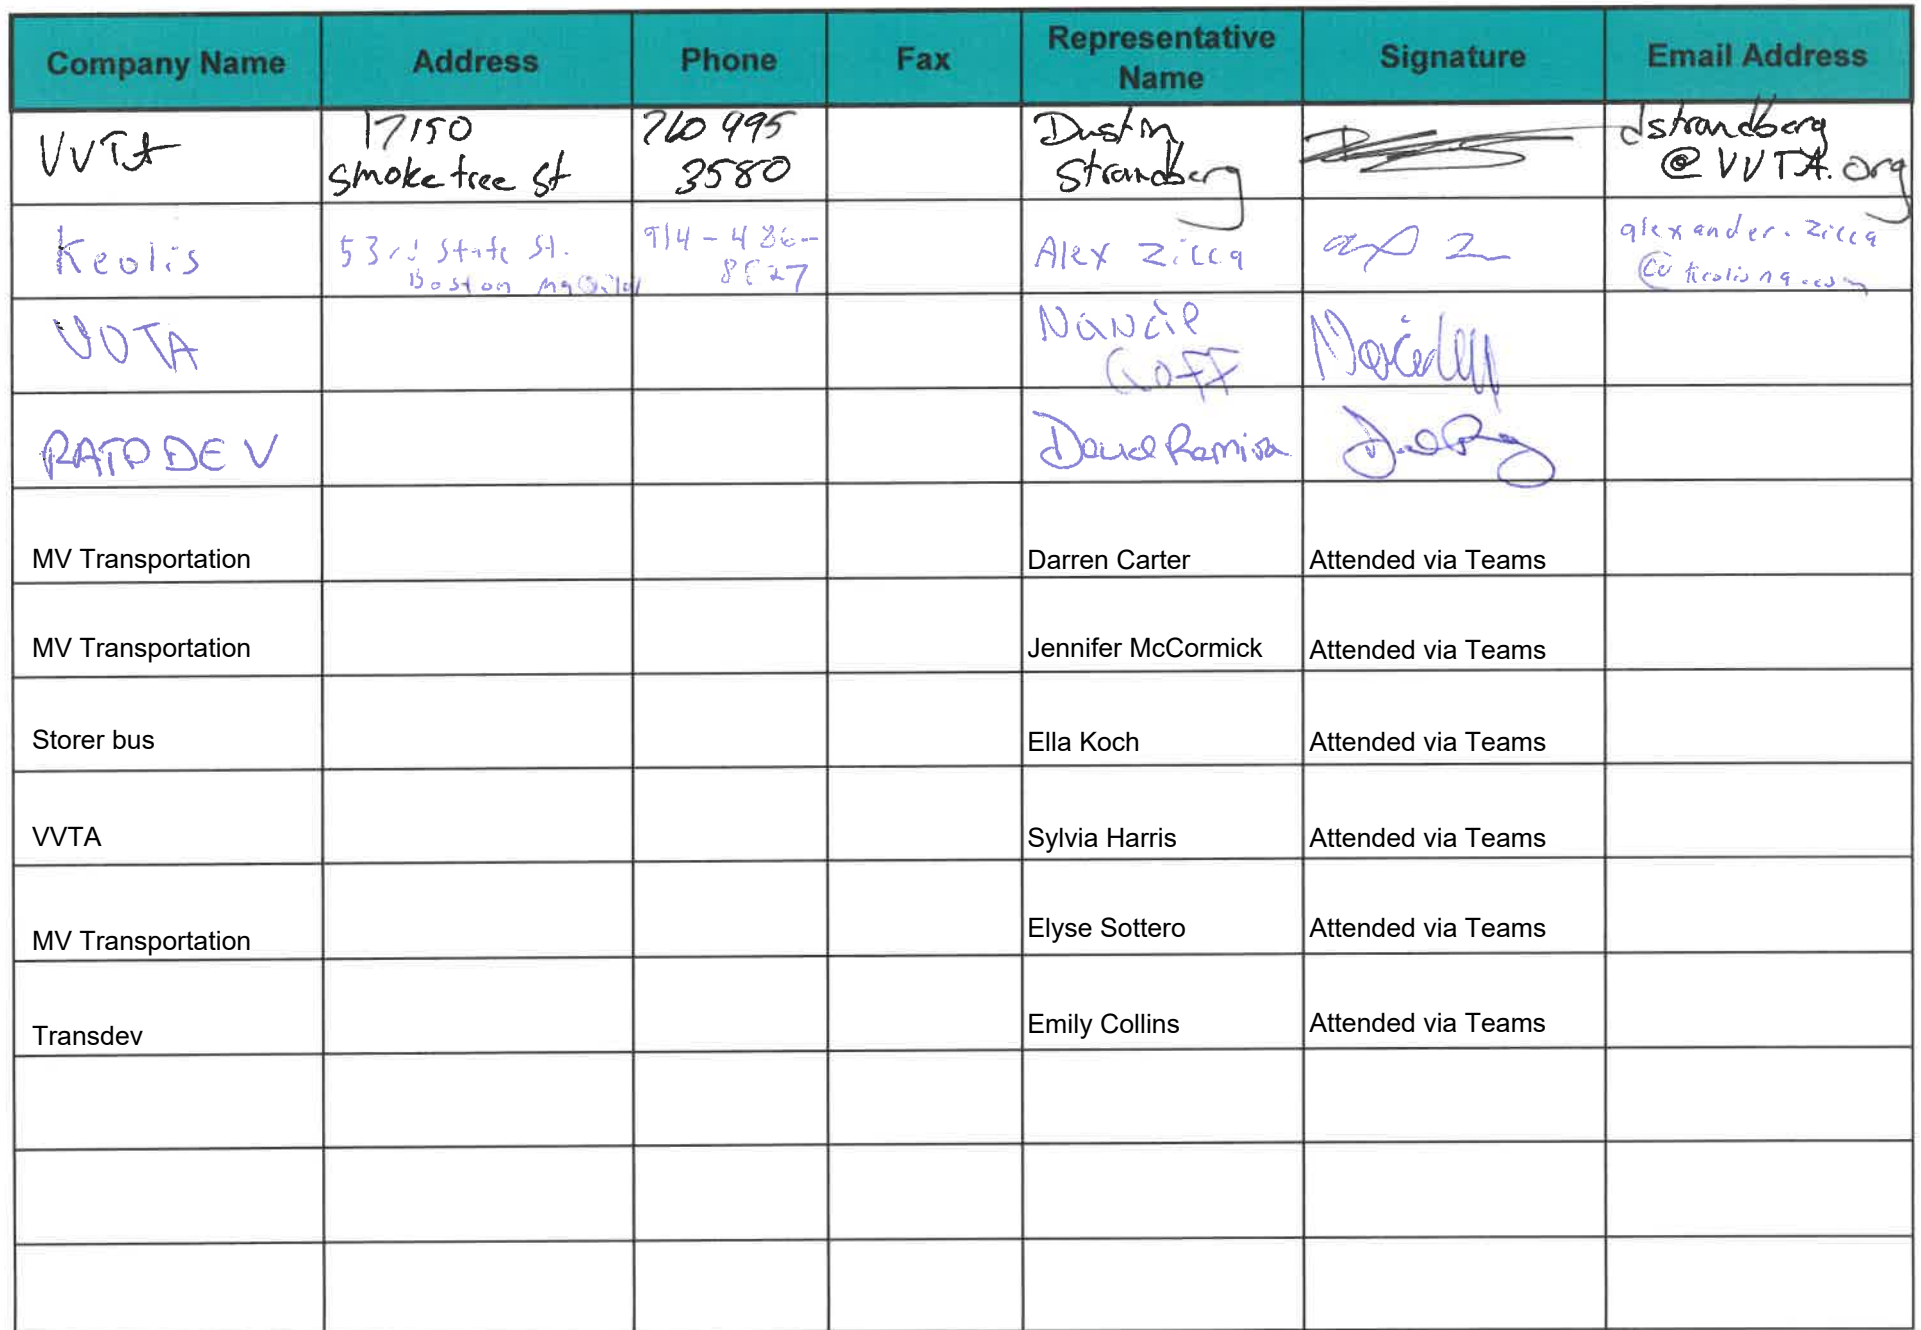 Company Name Address Phone Fax Representative Name Signature Email Address
VVTA 17150 760 995 Dustin dstrandberg
smoke tree st 3580 Strandberg @ VVTA.org
Keolis 53rd State St. 914-486- Alex Zicca alexander.zicca
Boston Ma @keolisna.com
VVTA Nancie
Goff
RATP DEV David
MV Transportation Darren Carter Attended via Teams
MV Transportation Jennifer McCormick Attended via Teams
Storer bus Ella Koch Attended via Teams
VVTA Sylvia Harris Attended via Teams
MV Transportation Elyse Sottero Attended via Teams
Transdev Emily Collins Attended via Teams